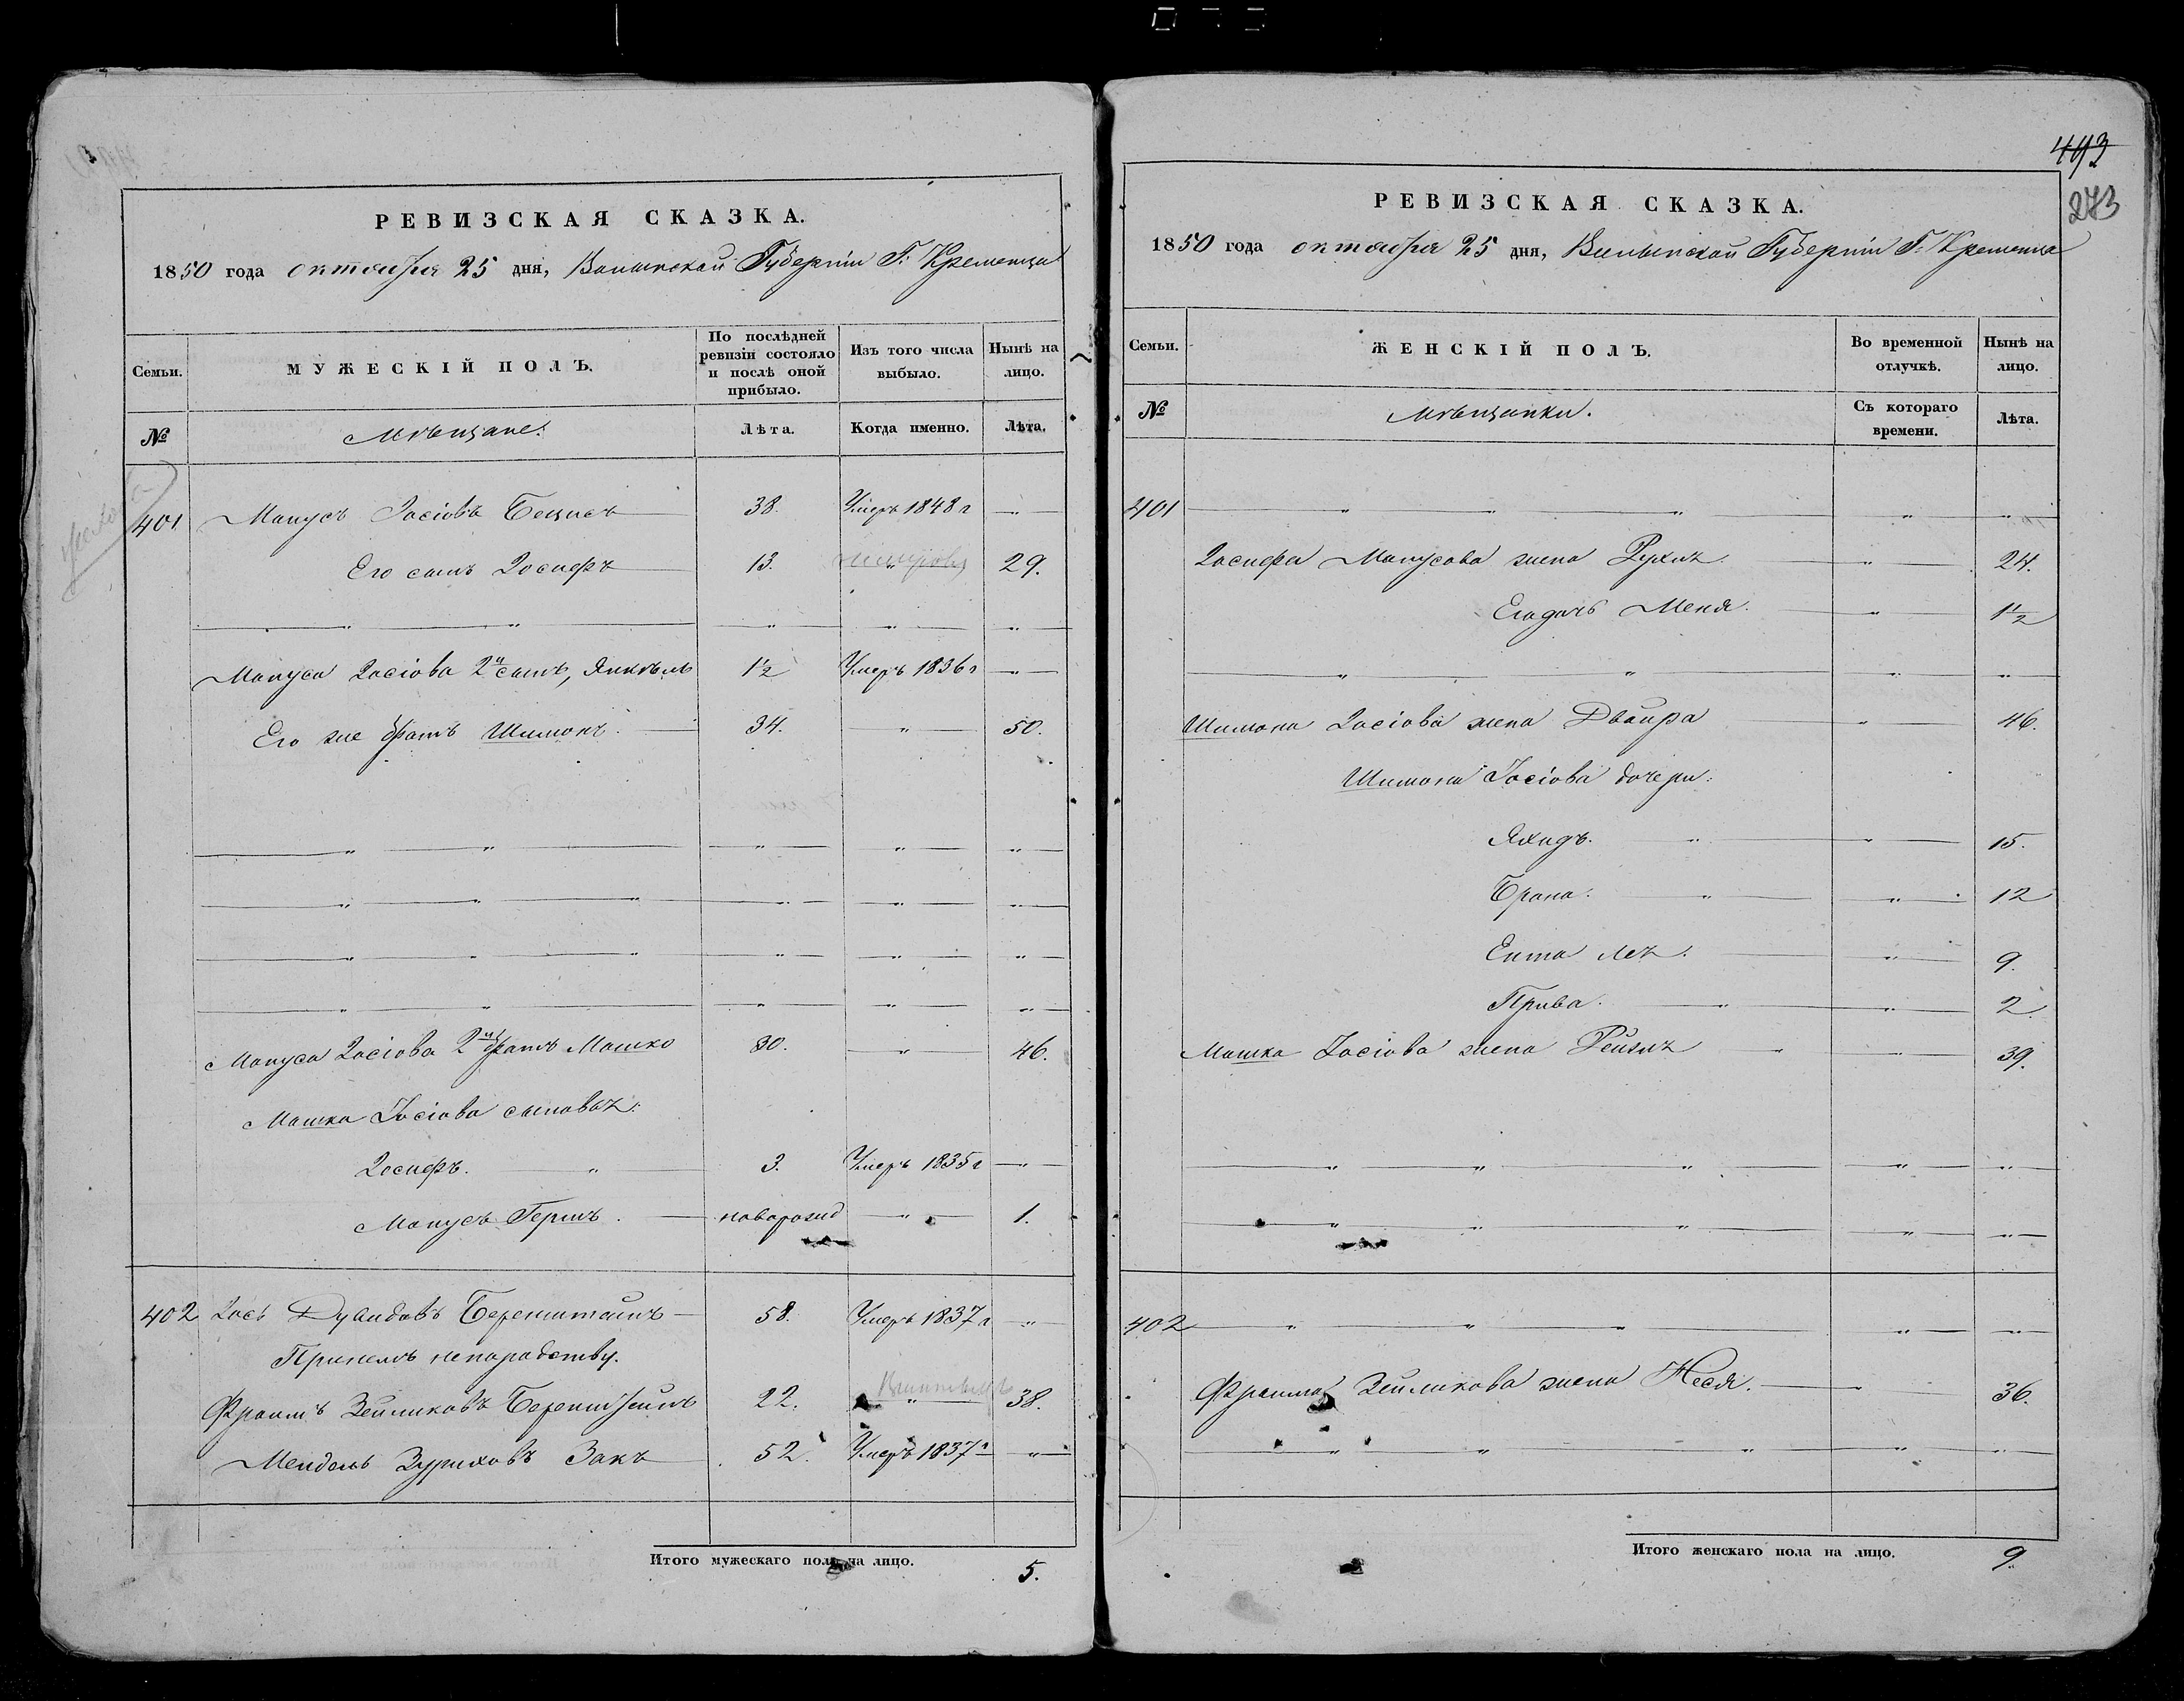 493
273
РЕВИЗСКАЯ СКАЗКА.
1850 года октября 25 дня, Волынской Губерніи Г. Кременца
Семьи.
МУЖЕСКІЙ ПОЛЪ.
По послѣдней ревизіи состояло и послѣ оной прибыло.
Изъ того числа выбыло.
Нынѣ на лицо.
№
Мѣщане.
Лѣта.
Когда именно.
Лѣта.
401 Манусъ Іосіовъ 38. Умеръ 1848 г — „ —
Его сынъ Іосифъ 13. „ 29.
— „ — „ — „ — „ — „
Мануса Іосіова 2й сынъ, Янкѣль 1½ Умеръ 1836 г — „ —
Его же братъ Шимонъ. 34. — „ — 50.
— „ — „ — „ — „ — „
— „ — „ — „ — „ — „ — „
— „ — „ — „ — „ — „ — „
— „ — „ — „ — „ — „
Мануса Іосіова 2й братъ Мошко 30. — „ — 46.
Мошка Іосіова сыновья:
Іосифъ. „ 3. Умеръ 1835 г — „ —
Манусъ Гершъ. новорожд — „ — 1.
402 Іось Дувидовъ Беренштейнъ 58. Умеръ 1837 г — „ —
Принятъ не по родству.
Фроимъ Зейликовъ Беренштейнъ 22. „ 38.
Мендель Зуриховъ Закъ 52. Умеръ 1837 г — „ —
Итого мужескаго пола на лицо. 5.
РЕВИЗСКАЯ СКАЗКА.
1850 года октября 25 дня, Волынской Губерніи Г. Кременца
Семьи.
ЖЕНСКІЙ ПОЛЪ.
Во временной отлучкѣ.
Нынѣ на лицо.
№
Мѣщанки.
Съ котораго времени.
Лѣта.
401 — „ — „ — „ — „ — „
Іосифа Манусова жена Рухля. — „ — 24.
Его дочь Меня. — „ — 1½
— „ — „ — „ — „
Шимона Іосіова жена Двойра — „ — 46.
Шимона Іосіова дочери:
Яхидъ. „ — „ — 15.
Брана. „ — „ — 12
Ента Лея. — „ — 9.
Прива. „ — „ — 2.
Мошка Іосіова жена Рейзя „ — „ — 39.
— „ — „ — „ — „ — „
— „ — „ — „ — „ — „
402 — „ — „ — „ — „ — „
Фроима Зейликова жена Неся. — „ 36.
— „ — „ — „ — „ — „
Итого женскаго пола на лицо. 9